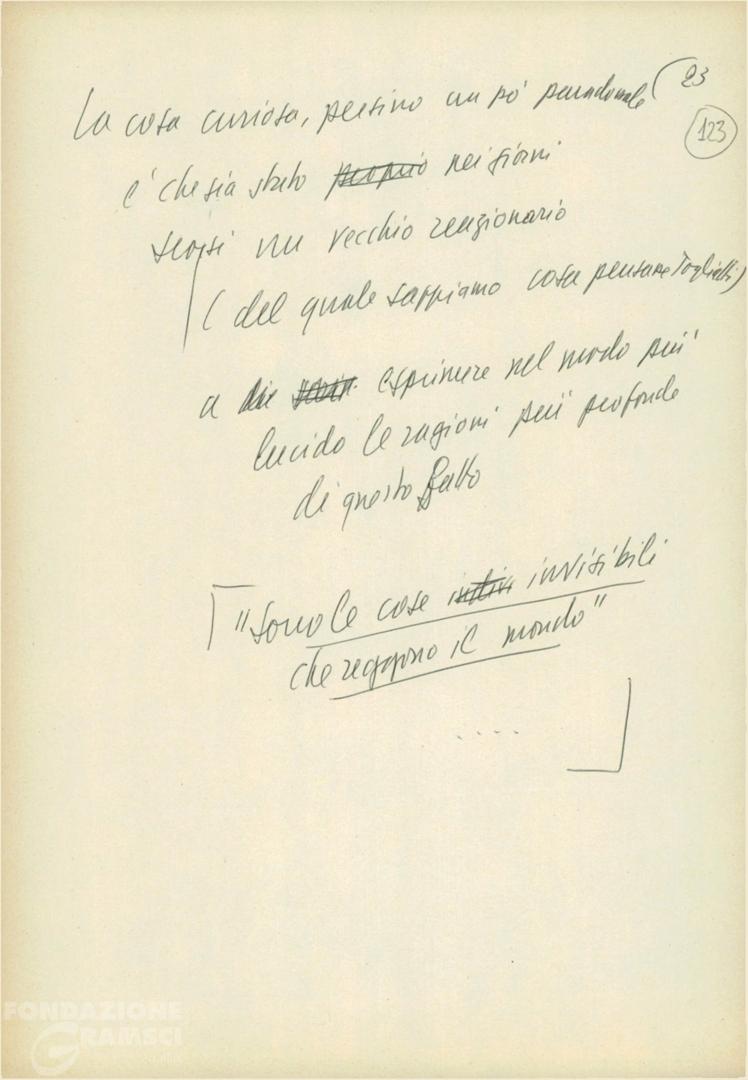 23
123
La cosa curiosa, persino un pò paradossale
è che sia stato proprio nei giorni
scorsi un vecchio reazionario
( del quale sappiamo cosa pensare Togliatti)
a esprimere nel modo più
lucido le ragioni più profonde
di questo fatto
"Sono le cose invisibili
che reggono il mondo"
....
FONDAZIONE
GRAMSCI